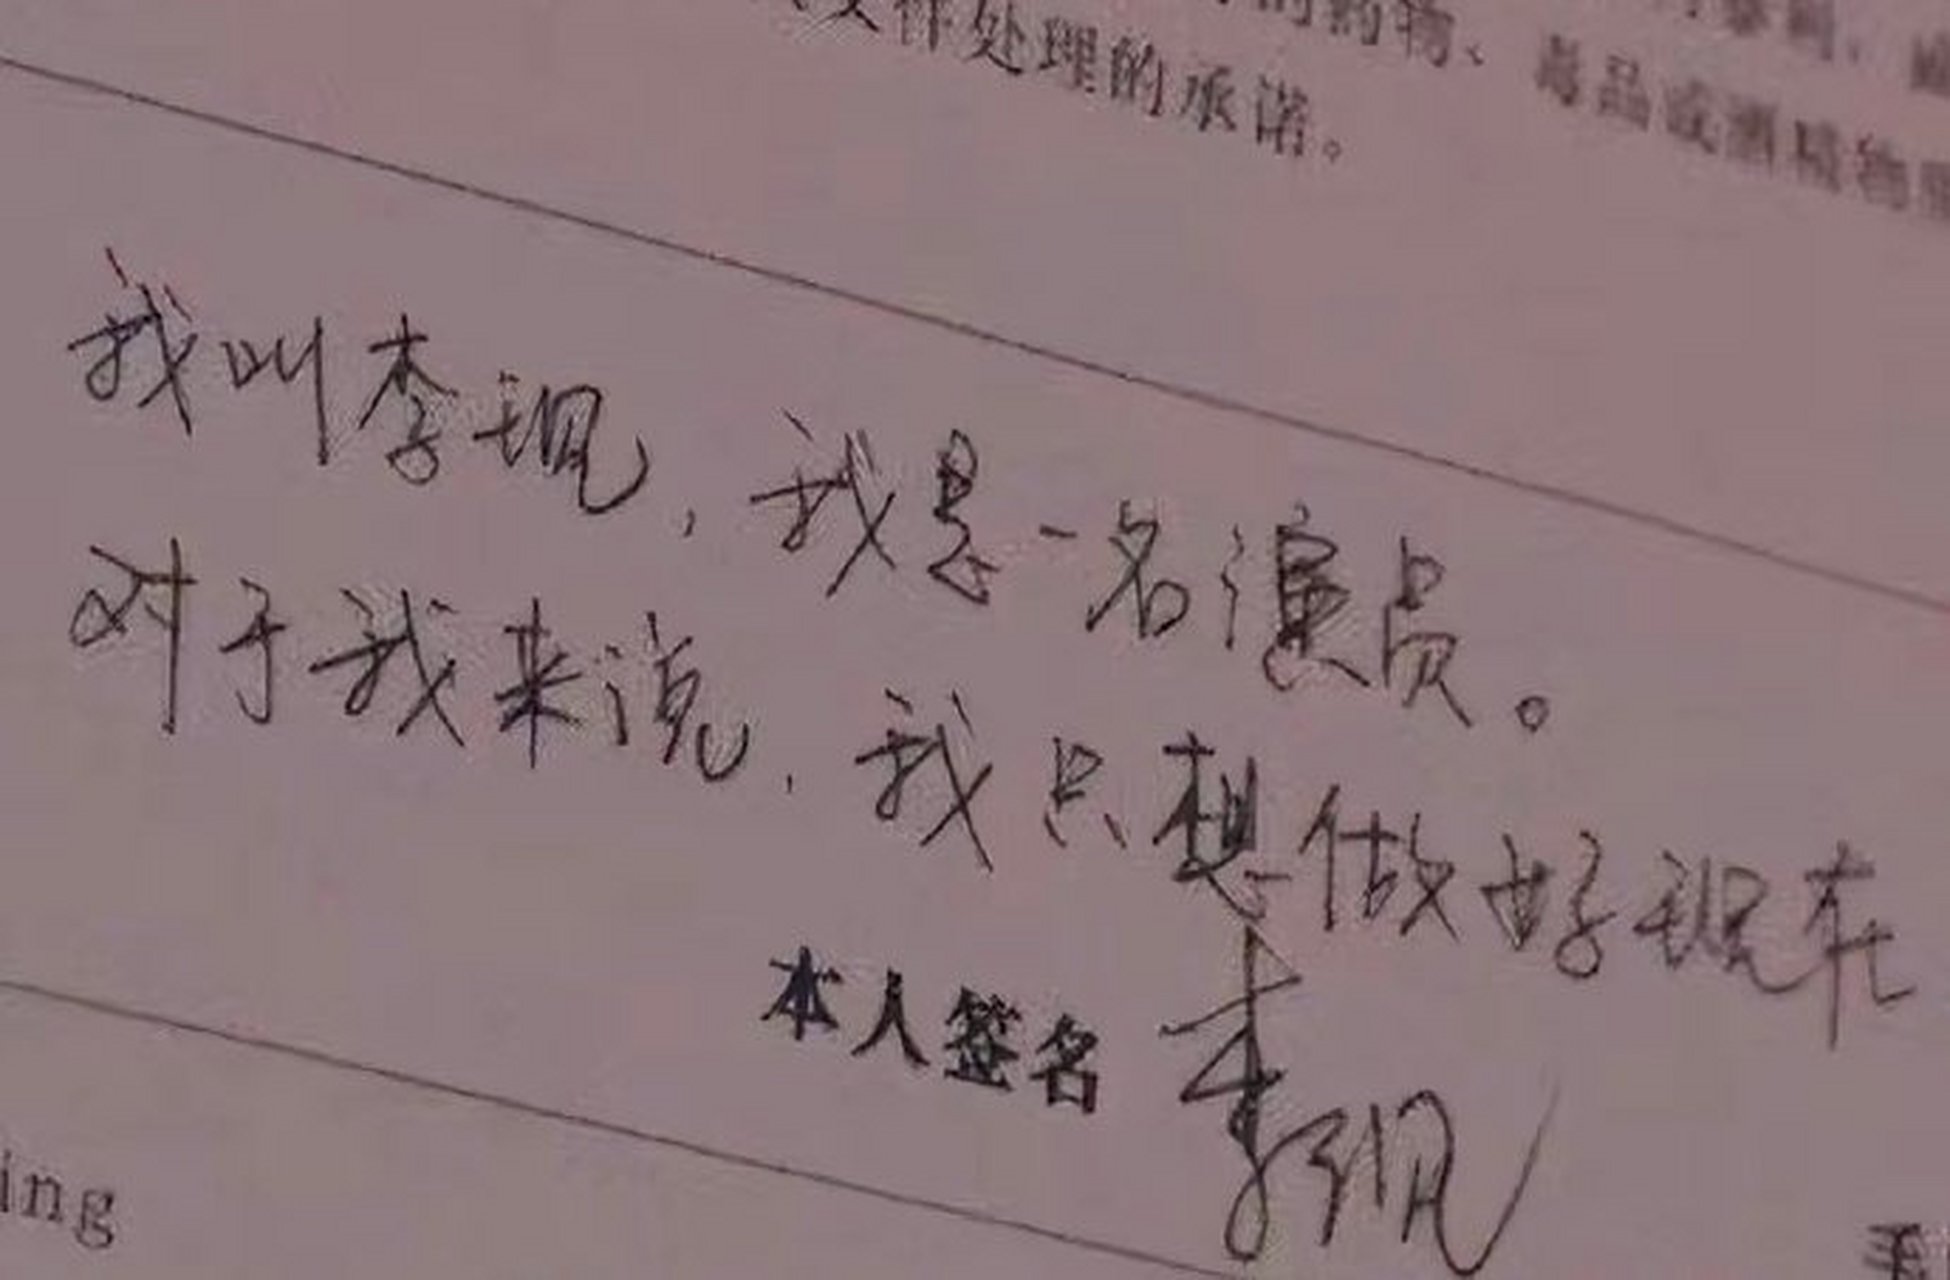 的药物、毒品或酒精物
件处理的承诺。
我叫李现，我是一名演员。
对于我来说，我只想做好现在
本人签名 李现
ing